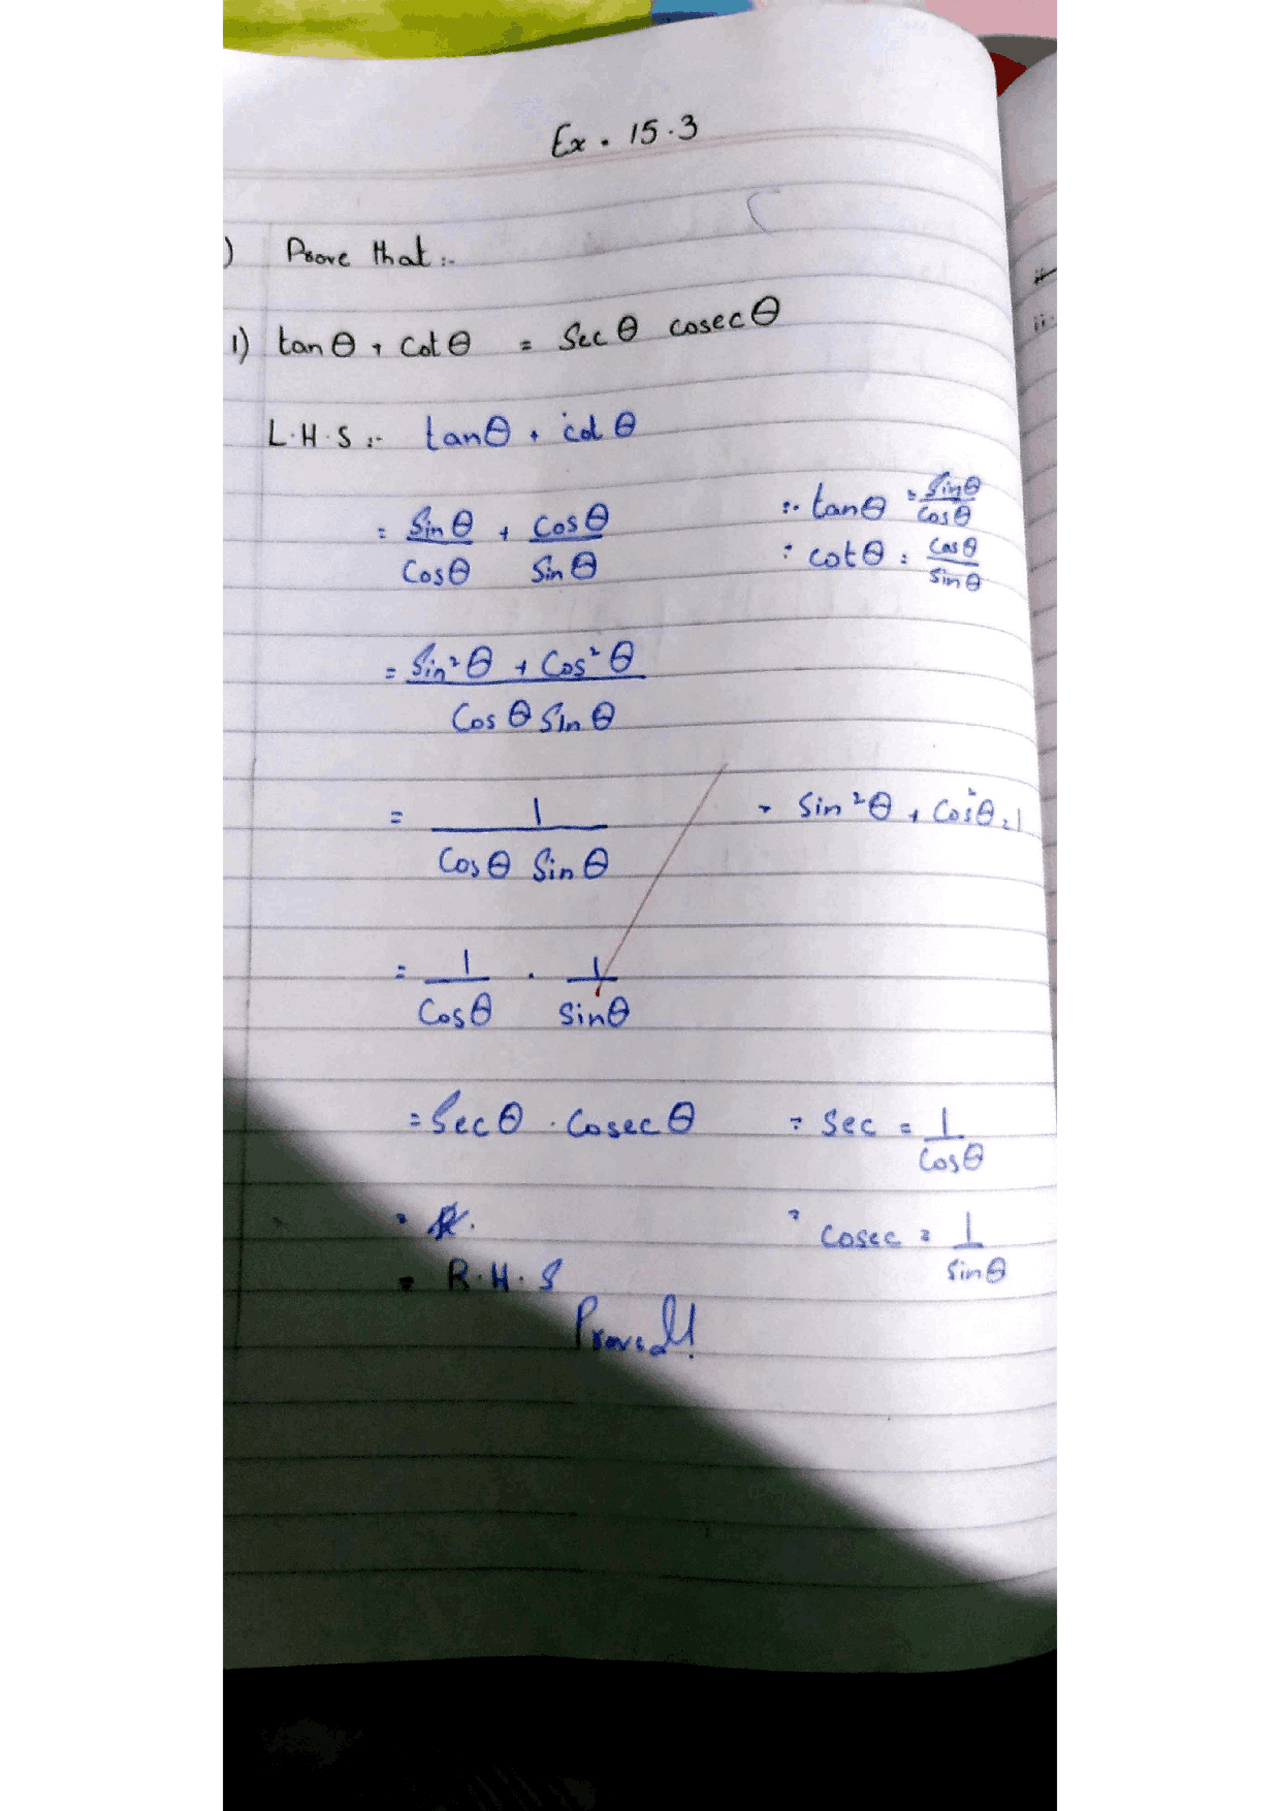 Ex. 15.3
) Prove that :-
1) tanθ + Cotθ = Secθ cosecθ
L.H.S :- tanθ + cotθ
= Sinθ/Cosθ + Cosθ/Sinθ ∵ tanθ = Sinθ/Cosθ
∵ cotθ = Cosθ/Sinθ
= Sin²θ + Cos²θ / Cosθ Sinθ
= 1 / Cosθ Sinθ ∵ Sin²θ + Cos²θ = 1
= 1/Cosθ . 1/Sinθ
= Secθ . Cosecθ ∵ Sec = 1/Cosθ
∵ Cosec = 1/Sinθ
= R.H.S
Proved!